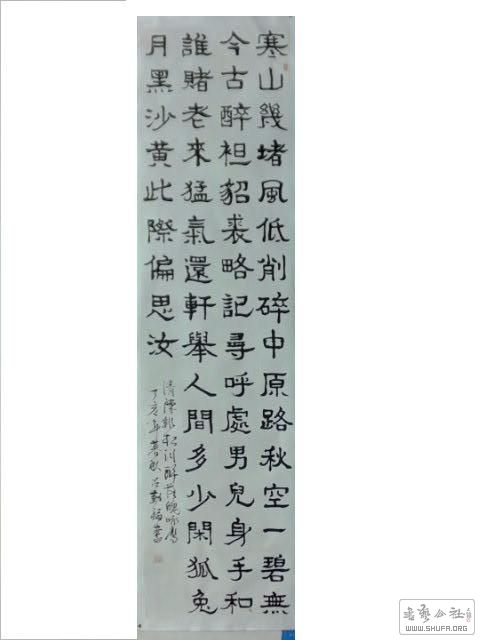 寒山幾堵風低削碎中原路秋空一碧無
今古醉袒貂裘略記尋呼處男兒身手和
誰賭老來猛氣還軒舉人間多少閑狐兔
月黑沙黄此際偏思汝
清陳維崧詞醉落魄咏鷹
丁亥年暮秋
书艺公社
WWW.SHUFA.ORG